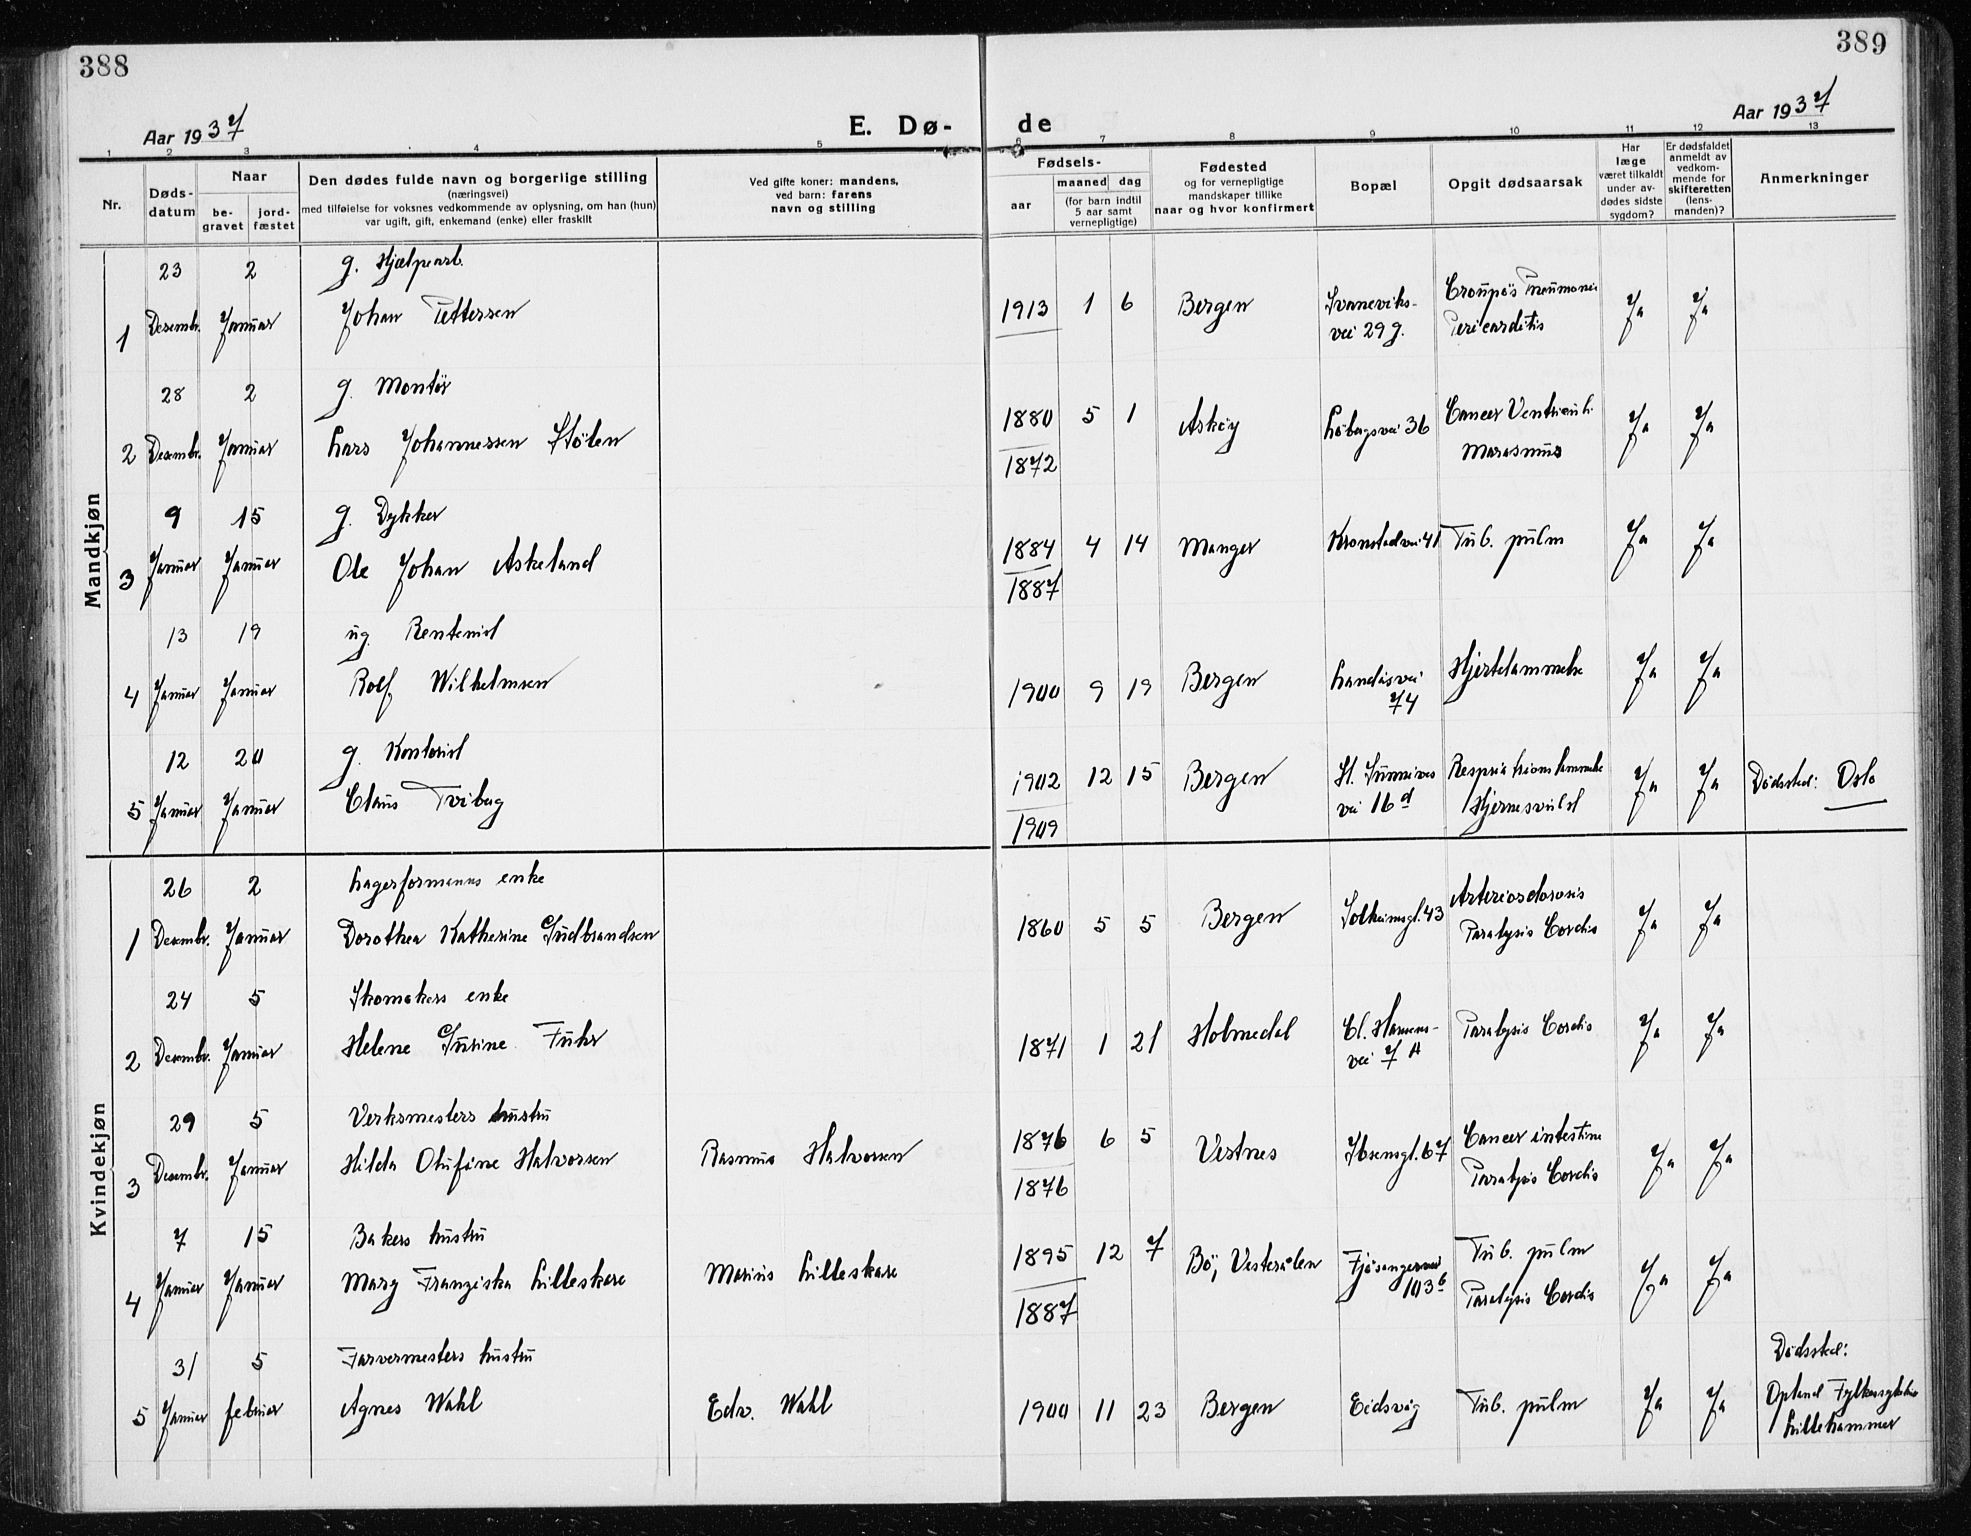 388
389
Aar 1937
E. Dø-
de
Aar 1937
1 2 3 4 5 6 7 8 9 10 11 12 13
Nr.
Døds-
datum
Naar
be-
gravet
jord-
fæstet
Den dødes fulde navn og borgerlige stilling
(næringsvei)
med tilføielse for voksnes vedkommende av oplysning, om han (hun)
var ugift, gift, enkemand (enke) eller fraskilt
Ved gifte koner: mandens,
ved barn: farens
navn og stilling
Fødsels-
aar
maaned dag
(for barn indtil
5 aar samt
vernepligtige)
Fødested
og for vernepligtige
mandskaper tillike
naar og hvor konfirmert
Bopæl
Opgit dødsaarsak
Har
læge
været tilkaldt
under av-
dødes sidste
sygdom?
Er dødsfaldet
anmeldt av
vedkom-
mende for
skifteretten
(lens-
manden)?
Anmerkninger
Mandkjøn
23 2 g. Hjælpearb.
1 Desembr. Januar Johan Pettersen
1913 1 6 Bergen Svaneviks-
vei 29 g. Croupøs Pneumoni
Pericarditis Ja Ja
28 2 g. Montør
2 Desembr. Januar Lars Johannessen Stølen
1880 5 1 Askøy Løbergsvei 36 Cancer Ventriculi
1872 Marasmus Ja Ja
9 15 g. Dykker
3 Januar Januar Ole Johan Askeland
1884 4 14 Manger Kronstadvei 41 Tub. pulm Ja Ja
1887
13 19 ug. Rentenist
4 Januar Januar Rolf Wilhelmsen
1900 9 19 Bergen Landåsvei
74 Hjertelammelse Ja Ja
12 20 g. Kontorist
5 Januar Januar Claus Tviberg
1902 12 15 Bergen St. Sunnives
vei 16 d Respirationslammelse
1909 Hjernesvulst Ja Ja Dødssted: Oslo
Kvindekjøn
26 2 Lagerformanns enke
1 Desembr. Januar Dorothea Katherine Gudbrandsen
1860 5 5 Bergen Solheimsgt. 43 Arteriosclorosis
Paralysis Cordis Ja Ja
24 5 Skomakers enke
2 Desembr. Januar Helene Gurine Fuhr
1871 1 21 Holmedal Cl. Hansens-
vei 7 A Paralysis Cordis Ja Ja
29 5 Verksmesters hustru
3 Desembr. Januar Hilda Olufine Halvorsen Rasmus Halvorsen
1876 6 5 Vestnes Ibsensgt. 67 Cancer intestine
1876 Paralysis Cordis Ja Ja
7 15 Bakers hustru
4 Januar Januar Mary Franziska Lilleskare Marius Lilleskare
1895 12 7 Bø, Vesterålen Fjøsangerveí
103 b Tub. pulm
1887 Paralysis Cordis Ja Ja
31 5 Farvermesters hustru
5 Januar februar Agnes Wahl Edv. Wahl
1900 11 23 Bergen Eidsvåg Tub. pulm Ja Ja
Dødssted:
Opland
Lillehammer